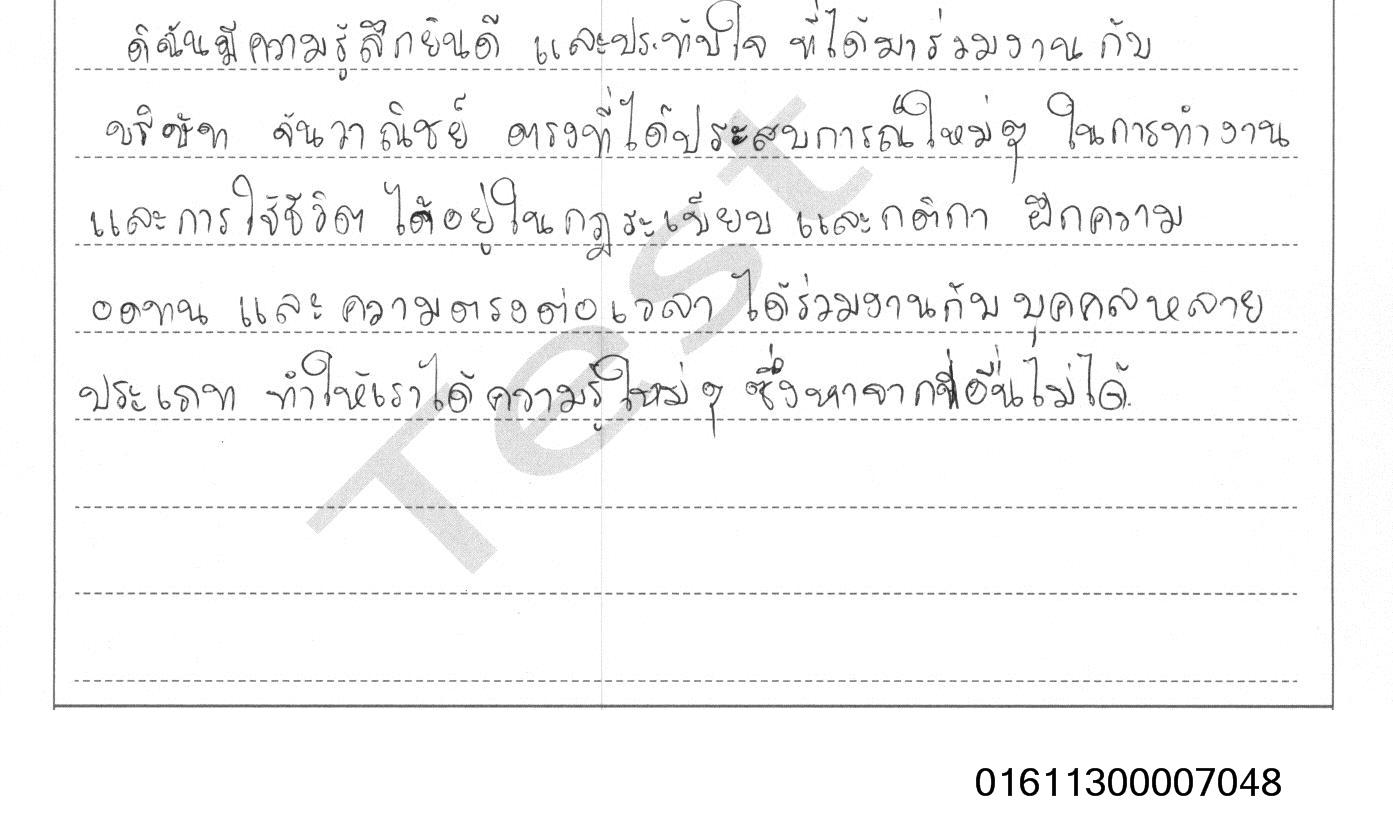 ดิฉันมีความรู้สึกยินดี และประทับใจ ที่ได้มาร่วมงาน กับ
บริษัท จันวาณิชย์ ตรงที่ได้ประสบการณ์ใหม่ๆ ในการทำงาน
และการใช้ชีวิต ได้อยู่ในกฎระเบียบ และกติกา ฝึกความ
อดทน และความตรงต่อเวลา ได้ร่วมงานกับบุคคลหลาย
ประเภท ทำให้เราได้ความรู้ใหม่ๆ ซึ่งหาจากที่อื่นไม่ได้.
Test
01611300007048